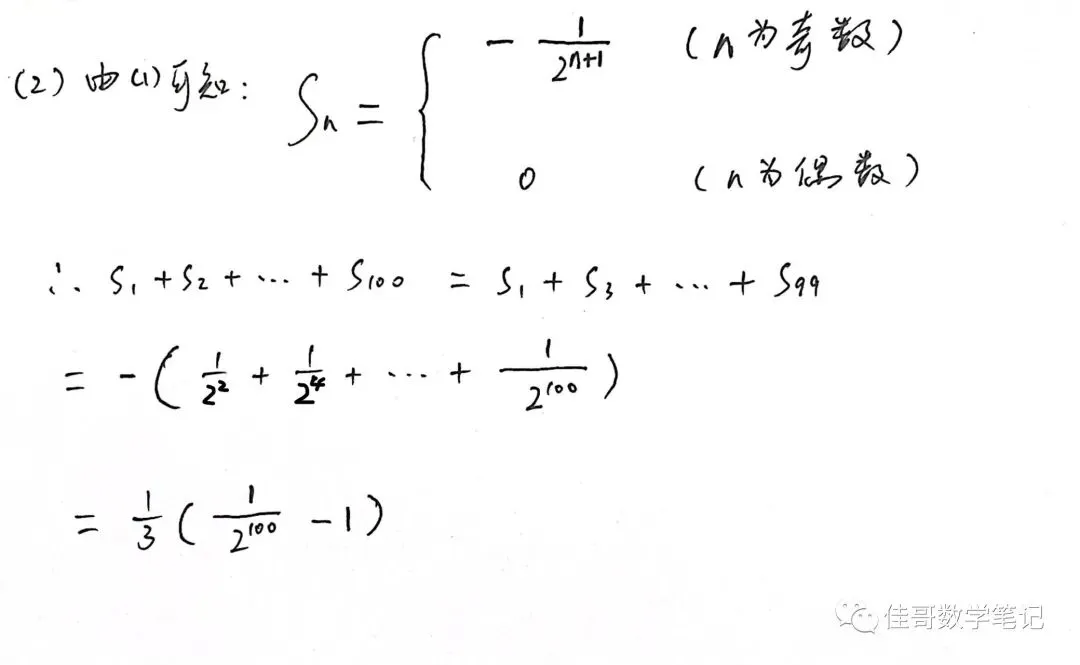 (2) 由(1)可知: Sn = { -1/2^(n+1) (n为奇数)
0 (n为偶数)
∴ S1 + S2 + ··· + S100 = S1 + S3 + ··· + S99
= -(1/2^2 + 1/2^4 + ··· + 1/2^100)
= 1/3(1/2^100 - 1)
佳哥数学笔记